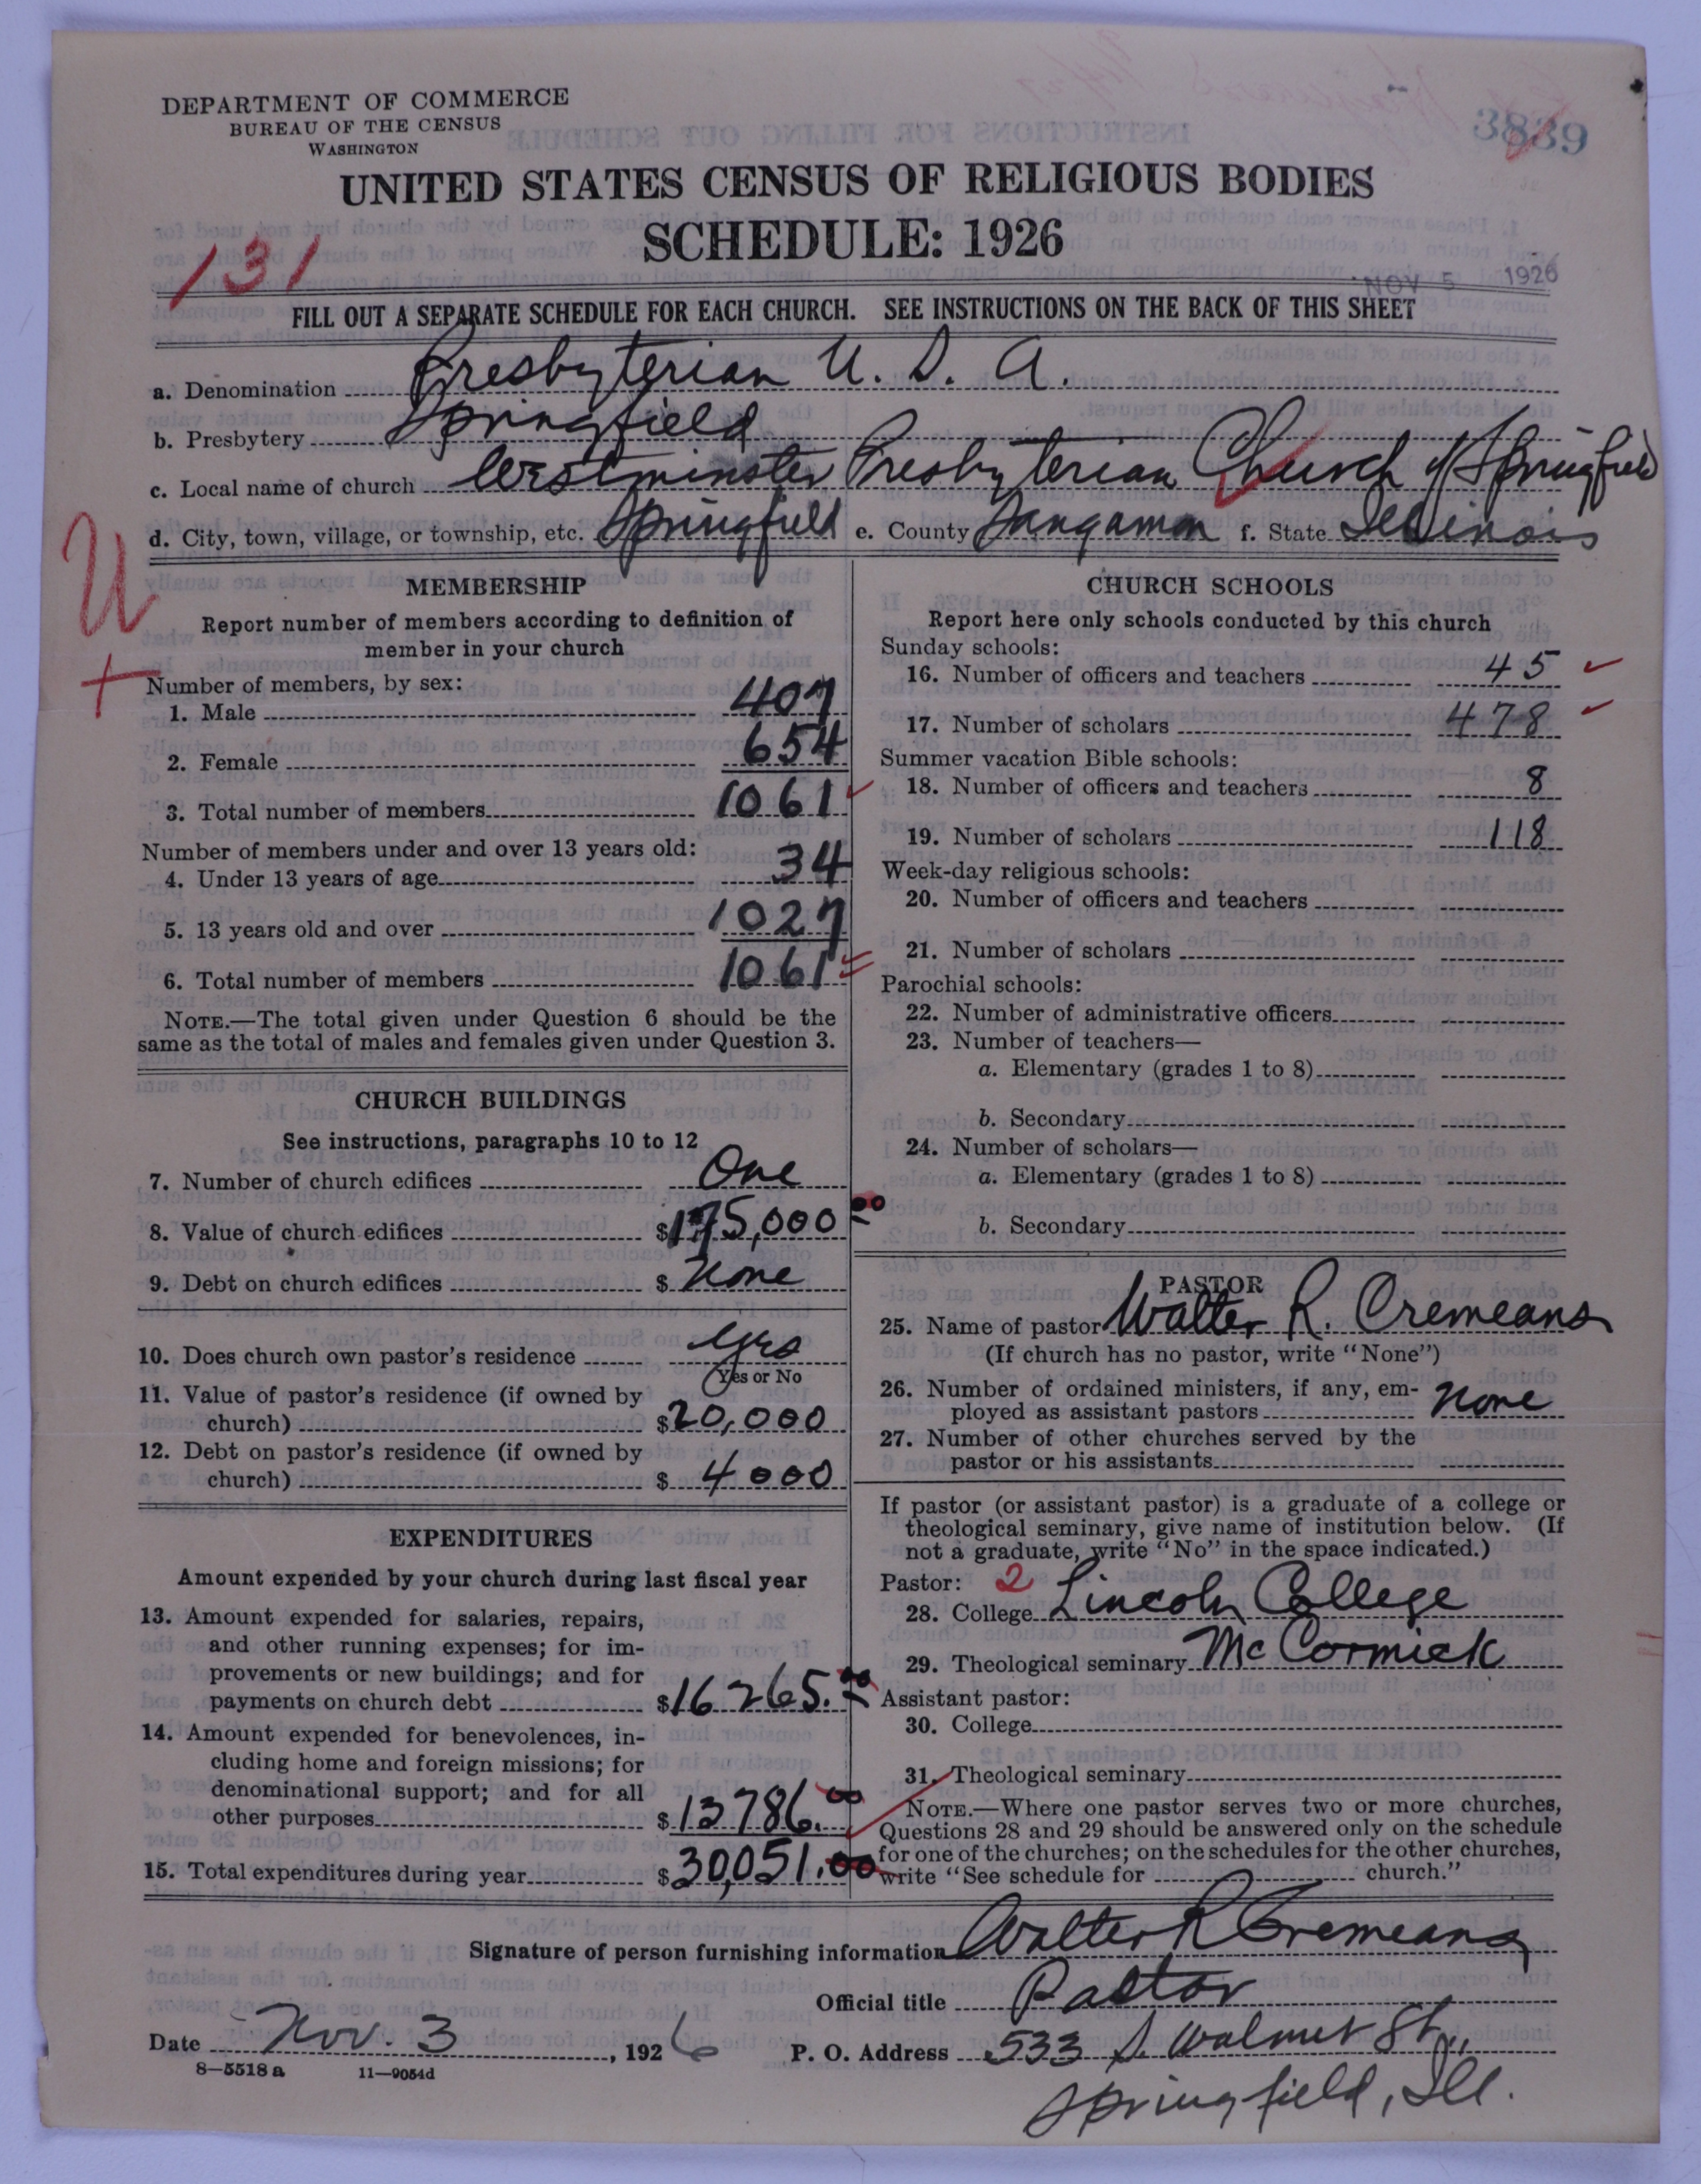 DEPARTMENT OF COMMERCE
BUREAU OF THE CENSUS
WASHINGTON
3839
UNITED STATES CENSUS OF RELIGIOUS BODIES
SCHEDULE: 1926
131
NOV 5 1926
FILL OUT A SEPARATE SCHEDULE FOR EACH CHURCH. SEE INSTRUCTIONS ON THE BACK OF THIS SHEET
a. Denomination Presbyterian U. S. A.
b. Presbytery Springfield
c. Local name of church Westminster Presbyterian Church of Springfield
d. City, town, village, or township, etc. Springfield e. County Sangamon f. State Illinois
U
+
MEMBERSHIP
Report number of members according to definition of
member in your church
Number of members, by sex:
1. Male 407
2. Female 654
3. Total number of members 1061
Number of members under and over 13 years old:
4. Under 13 years of age 34
5. 13 years old and over 1027
6. Total number of members 1061
NOTE.—The total given under Question 6 should be the
same as the total of males and females given under Question 3.
CHURCH BUILDINGS
See instructions, paragraphs 10 to 12
7. Number of church edifices One
8. Value of church edifices $175,000 00
9. Debt on church edifices $ None
10. Does church own pastor's residence Yes
Yes or No
11. Value of pastor's residence (if owned by
church) $20,000
12. Debt on pastor's residence (if owned by
church) $ 4000
EXPENDITURES
Amount expended by your church during last fiscal year
13. Amount expended for salaries, repairs,
and other running expenses; for im-
provements or new buildings; and for
payments on church debt $16265.00
14. Amount expended for benevolences, in-
cluding home and foreign missions; for
denominational support; and for all
other purposes $13786.00
15. Total expenditures during year $30,051.00
CHURCH SCHOOLS
Report here only schools conducted by this church
Sunday schools:
16. Number of officers and teachers 45
17. Number of scholars 478
Summer vacation Bible schools:
18. Number of officers and teachers 8
19. Number of scholars 118
Week-day religious schools:
20. Number of officers and teachers
21. Number of scholars
Parochial schools:
22. Number of administrative officers
23. Number of teachers—
a. Elementary (grades 1 to 8)
b. Secondary
24. Number of scholars—
a. Elementary (grades 1 to 8)
b. Secondary
PASTOR
25. Name of pastor Walter R. Cremeans
(If church has no pastor, write "None")
26. Number of ordained ministers, if any, em-
ployed as assistant pastors None
27. Number of other churches served by the
pastor or his assistants
If pastor (or assistant pastor) is a graduate of a college or
theological seminary, give name of institution below. (If
not a graduate, write "No" in the space indicated.)
Pastor: 2
28. College Lincoln College
29. Theological seminary McCormick
Assistant pastor:
30. College
31. Theological seminary
NOTE.—Where one pastor serves two or more churches,
Questions 28 and 29 should be answered only on the schedule
for one of the churches; on the schedules for the other churches,
write "See schedule for church."
Signature of person furnishing information Walter R Cremeans
Official title Pastor
Date Nov. 3, 1926 P. O. Address 533 S. Walnut St.,
8—5518a 11—9054d
Springfield, Ill.